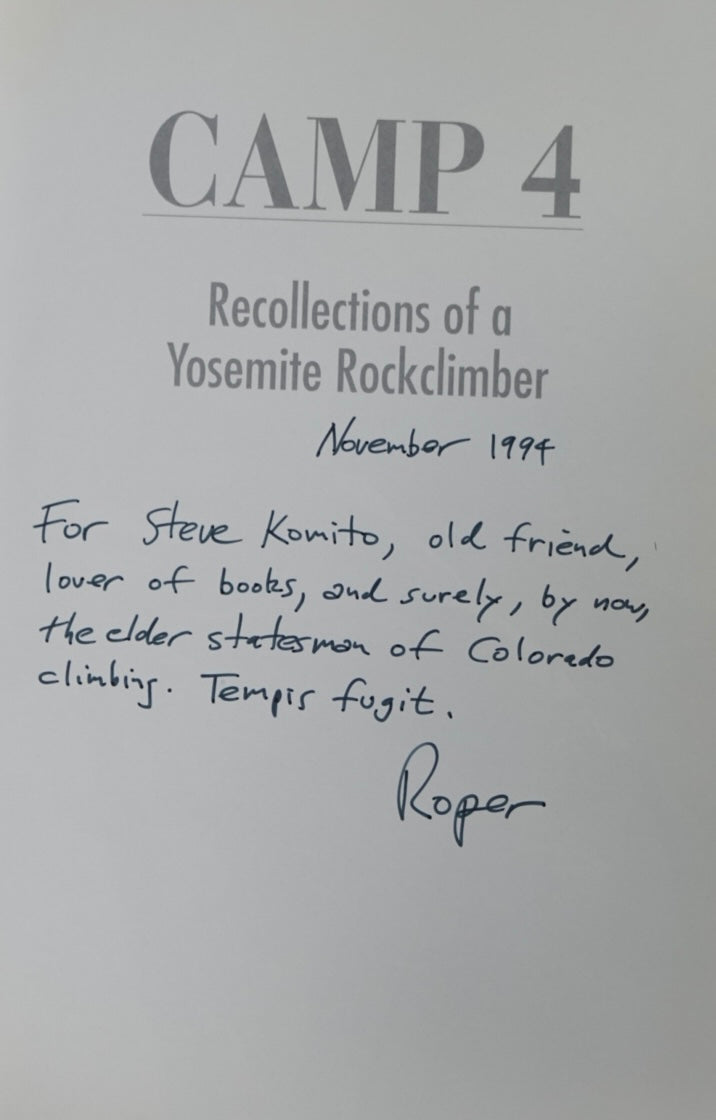 CAMP 4
Recollections of a
Yosemite Rockclimber
November 1994
For Steve Komito, old friend,
lover of books, and surely, by now,
the elder statesman of Colorado
climbing. Tempis fugit.
Roper